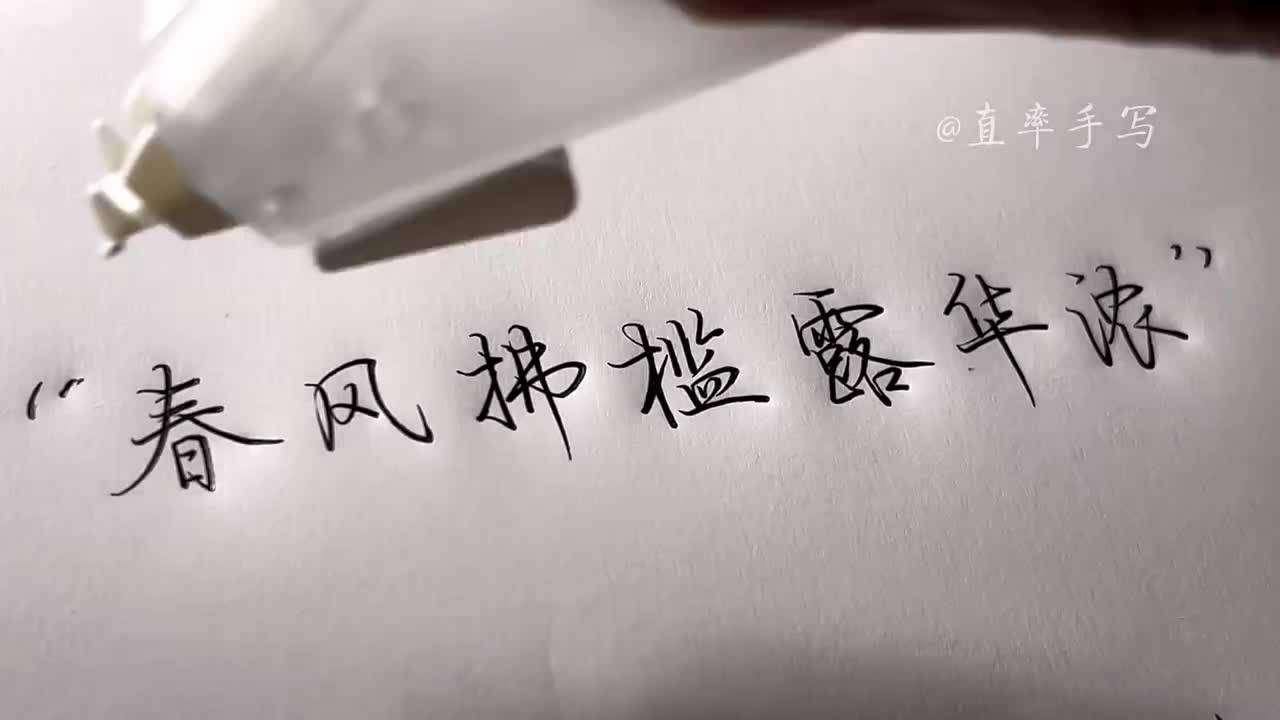 @直率手写
“春风拂槛露华浓”